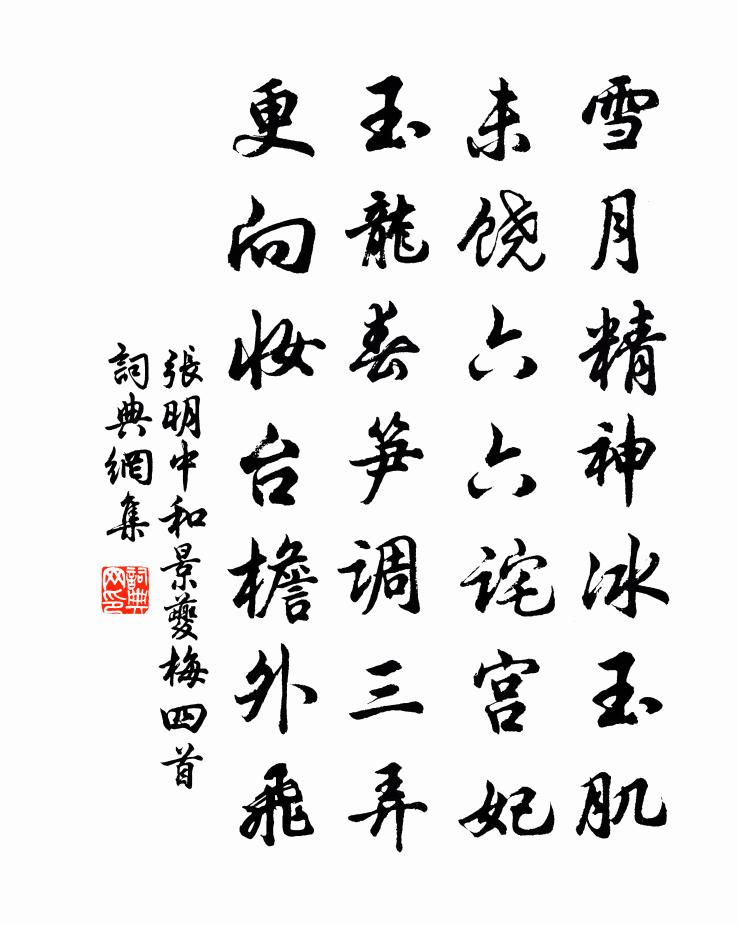 雪月精神冰玉肌
未饶六六诧宫妃
玉龍春笋调三弄
更向妆台檐外飛
張明中和景夔梅四首
詞典網集
詞典网印